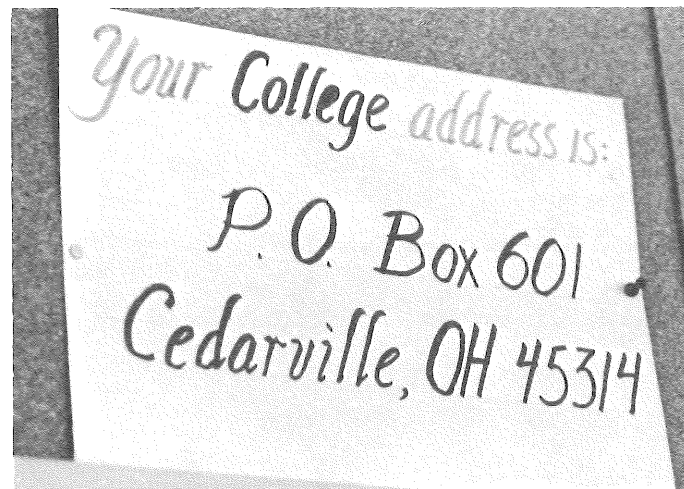 Your College address is:
P.O. Box 601
Cedarville, OH 45314